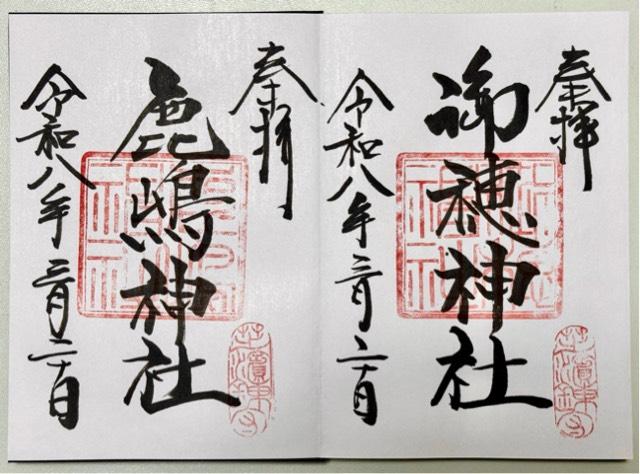 奉拝
御穂神社
令和八年三月二十日
奉拝
鹿嶋神社
令和八年三月二十日